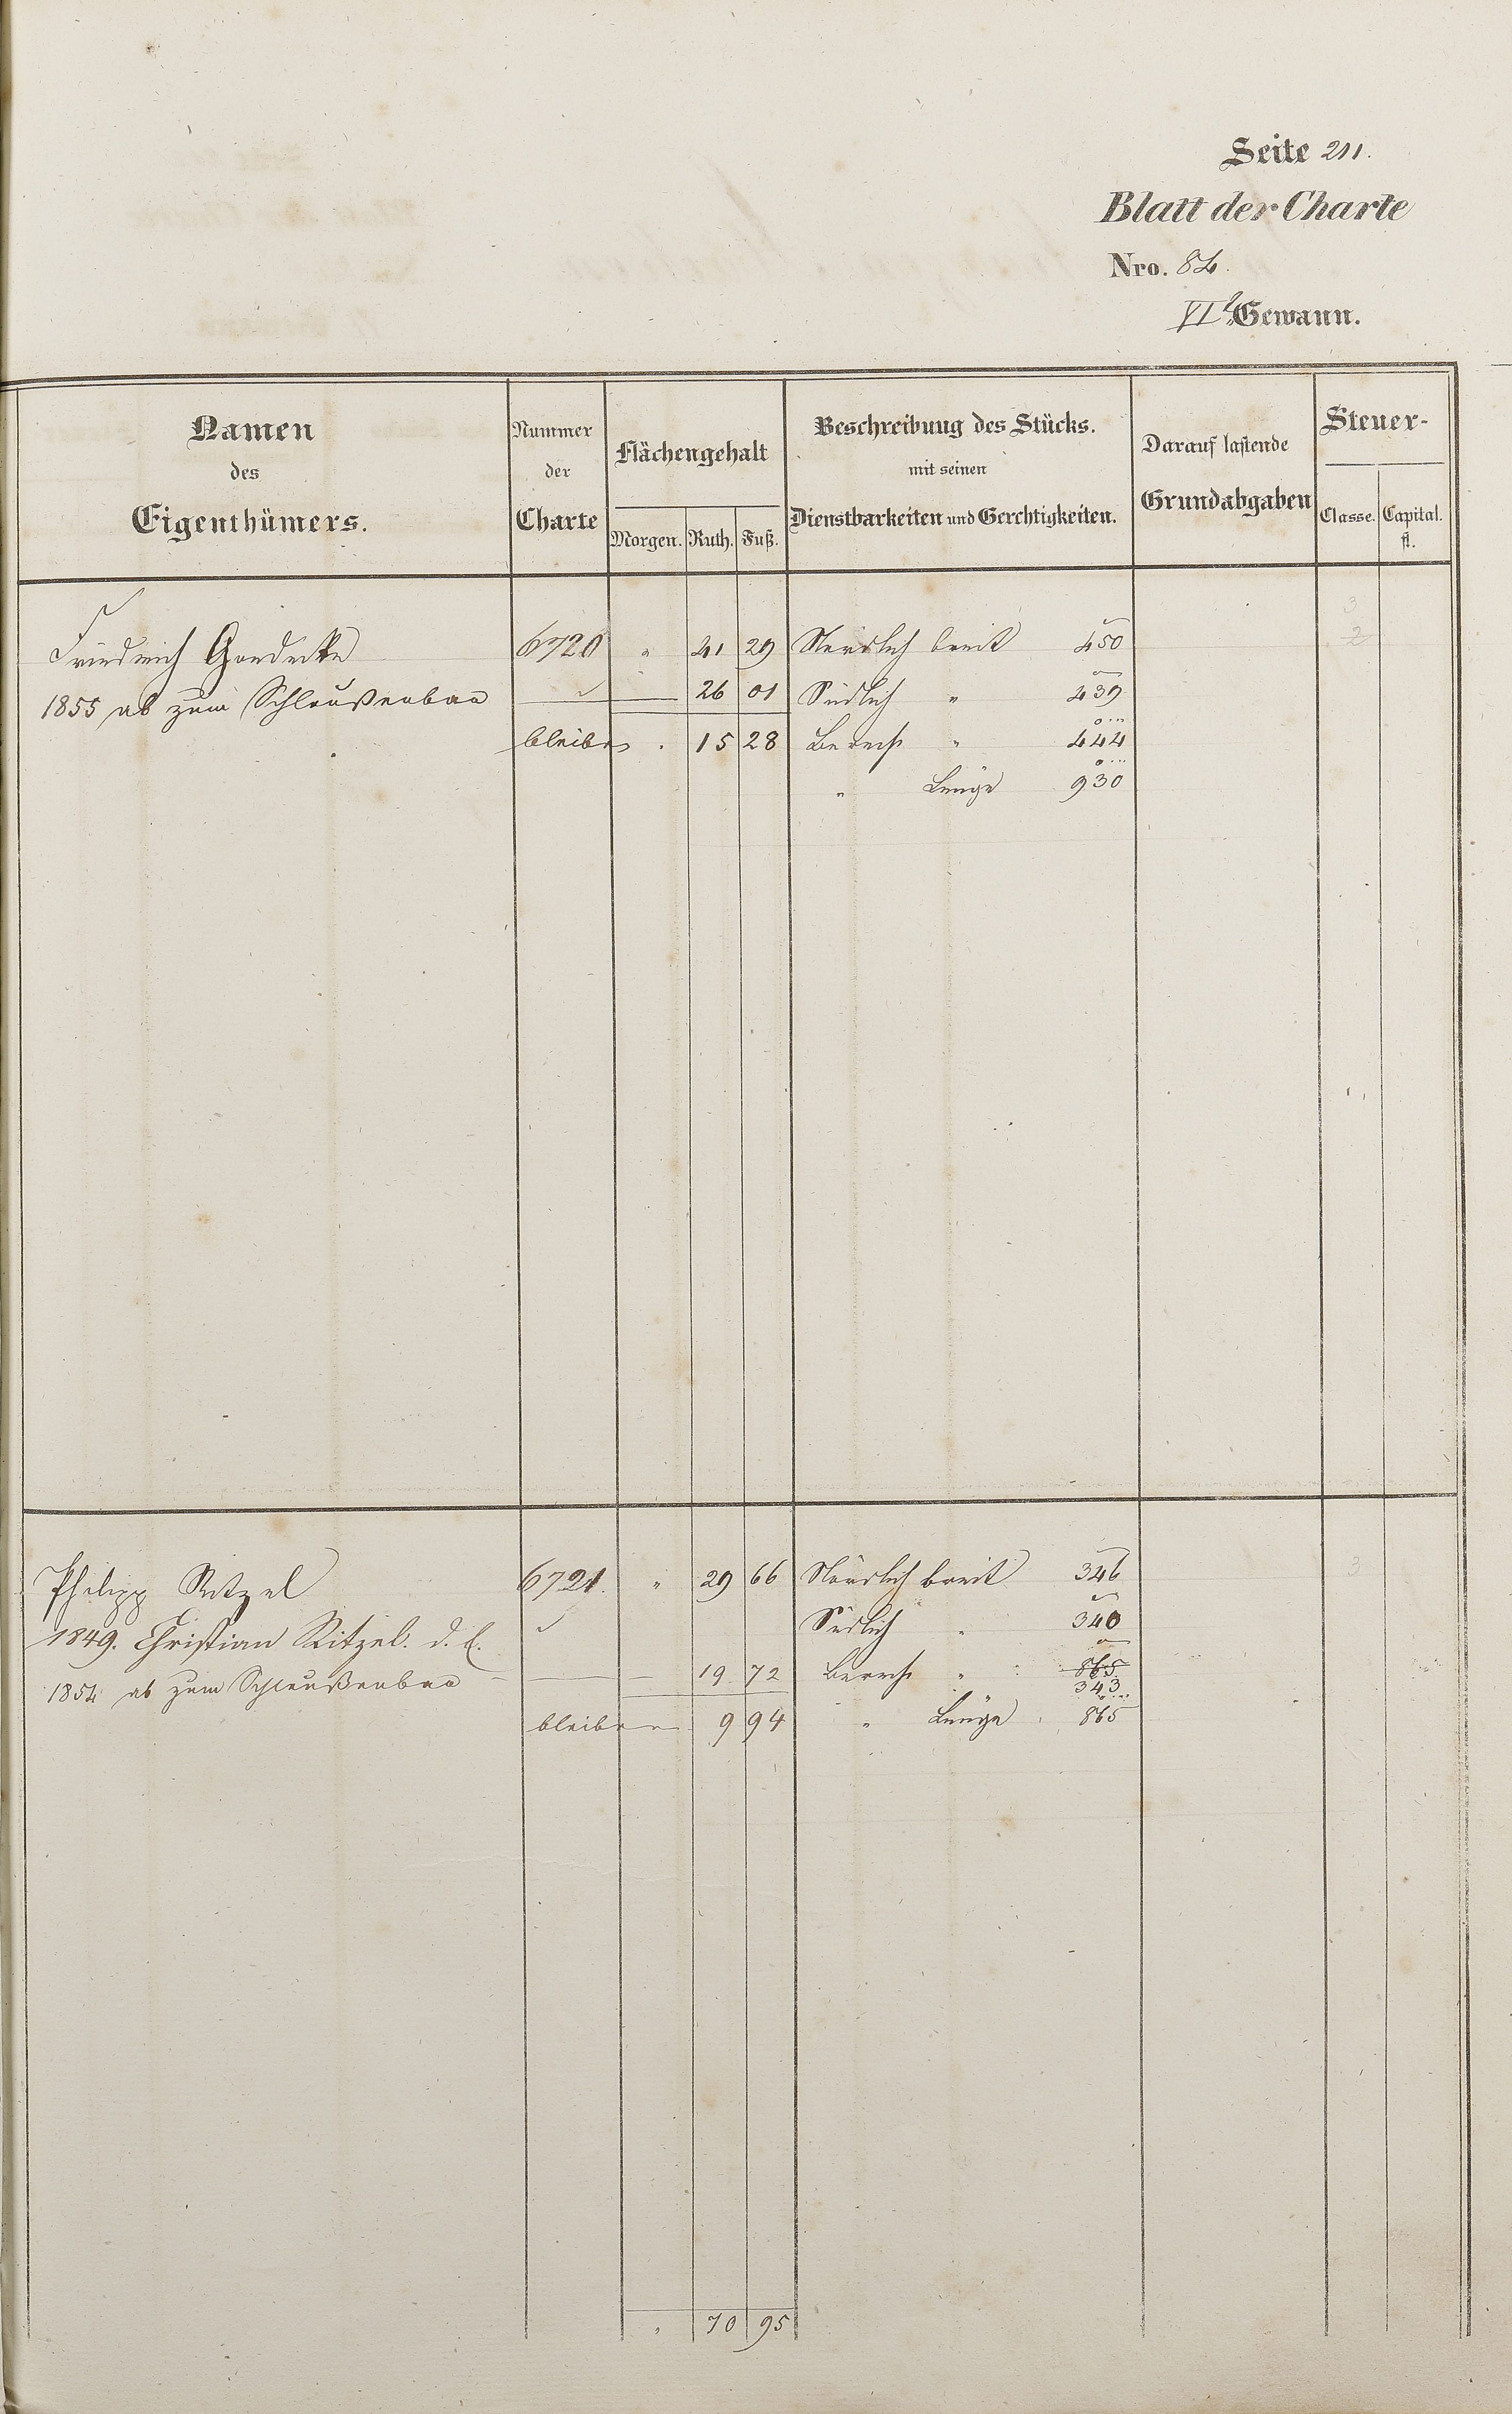 Seite 211.
Blatt der Charte
Nro. 84.
VI Gewann.
Namen
des
Eigenthümers.
Nummer
der
Charte
Flächengehalt
Morgen. Ruth. Fuß.
Beschreibung des Stücks.
mit seinen
Dienstbarkeiten und Gerchtigkeiten.
Darauf lastende
Grundabgaben
Steuer-
Classe. Capital.
fl.
3
Friedrich Goedecke 6720 " 41 29 Nördlich breit 450 2
1855 ab zum Schleußenbau — 26 01 Südlich " 439
bleiben . 15 28 Berech " 444
" Länge 930
Philipp Ritzel 6721. " 29 66 Nördlich breit 346 3
1849. Christian Ritzel. d. l. Südlich " 340
1854 ab zum Schleußenbau — 19 72 Berech " 865
343
bleiben 9 94 " Länge 865
" 70 95